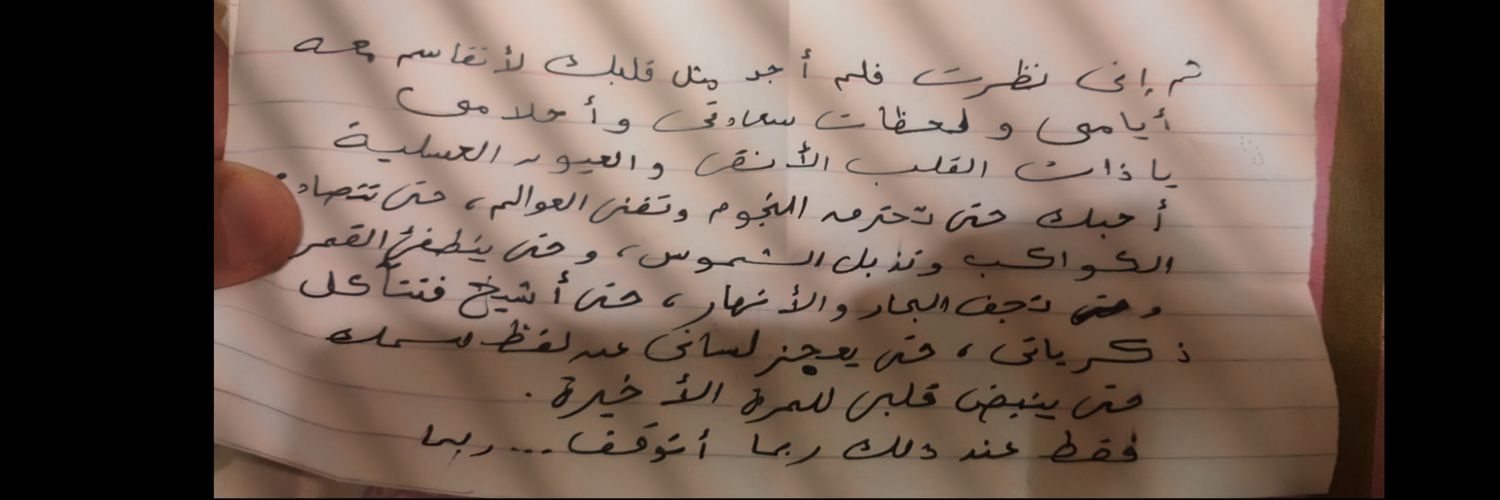 ثم إنى نظرت فلم أجد مثل قلبك لأتقاسم معه
أيامى ولحظات سعادتى وأحلامى
ياذات القلب الأنقى والعيون العسلية
أحبك حتى تحترق النجوم وتفنى العوالم، حتى تتصادم
الكواكب وتذبل الشموس، وحتى ينطفئ القمر
وحتى تجف البحار والأنهار، حتى أشيخ فتتآكل
ذكرياتى، حتى يعجز لسانى عن لفظ اسمك
حتى ينبض قلبى للمرة الأخيرة.
فقط عند ذلك ربما أتوقف... ربما